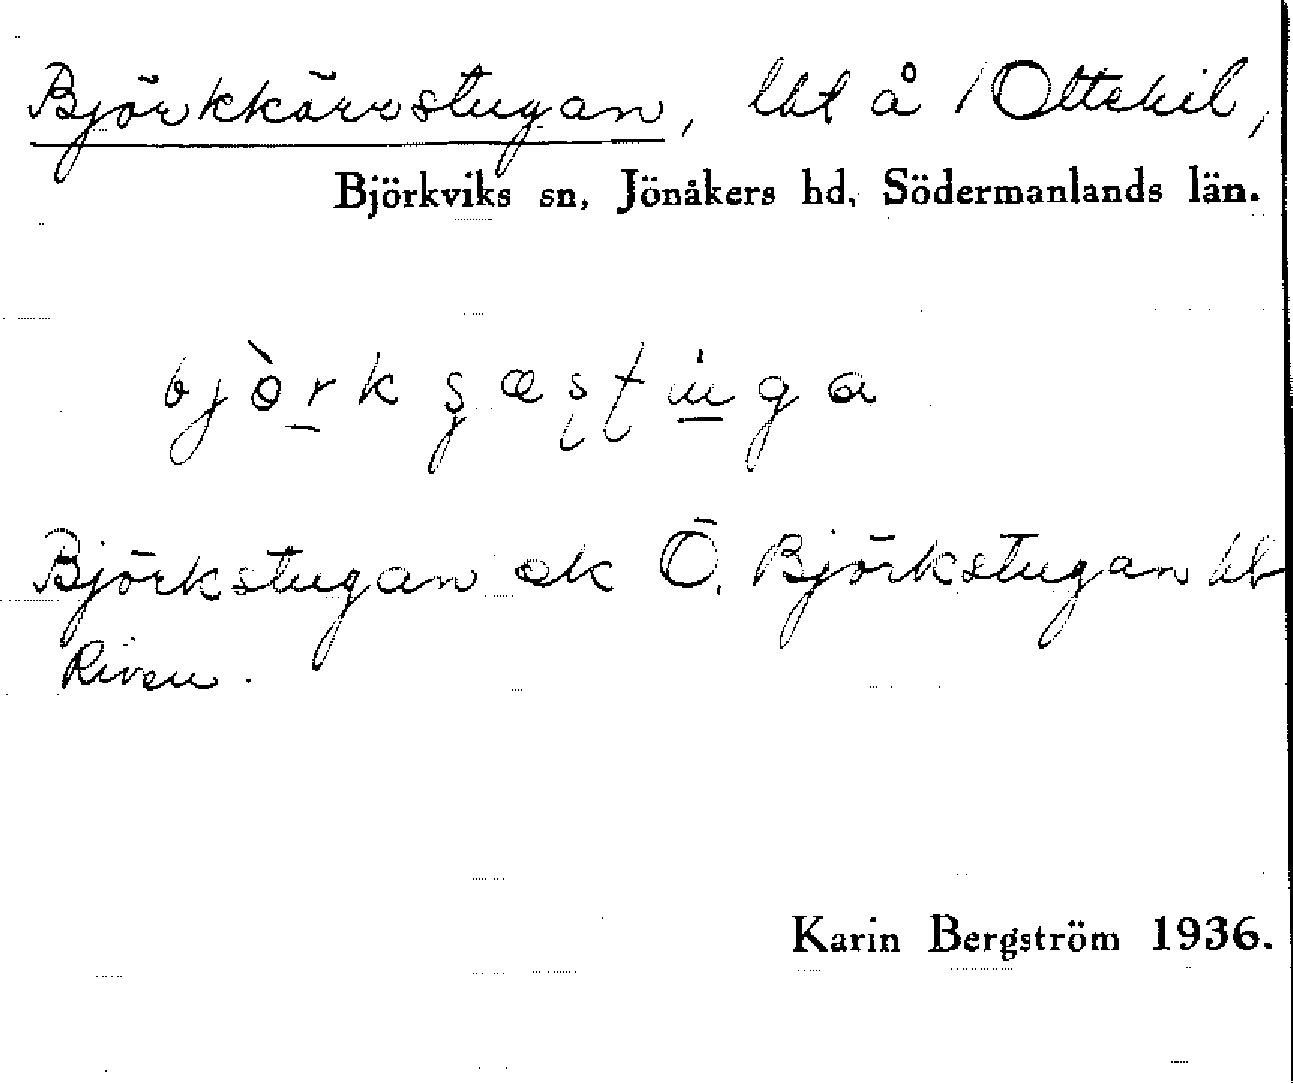 Björkkärrstugan, lht å 1 Ottekil,
Björkviks sn, Jönåkers hd, Södermanlands län.
Björkstugan ek Ö. Björkstugan hb
Riven.
Karin Bergström 1936.